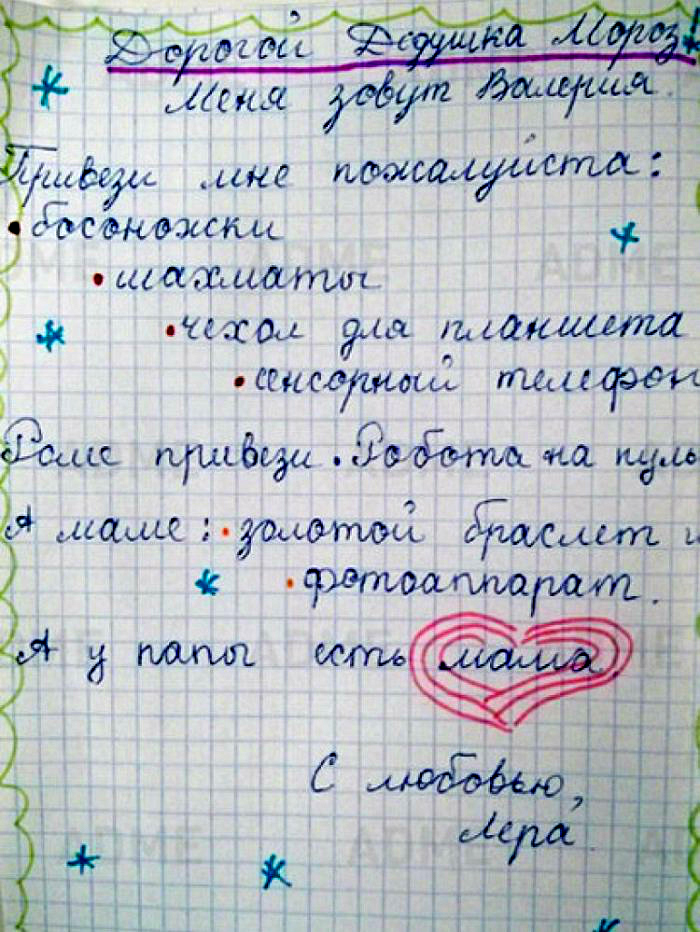 Дорогой Дедушка Мороз!
Меня зовут Валерия.
Привези мне пожалуйста:
• босоножки
• шахматы
• чехол для планшета
• сенсорный телефон
Роме привези • Робота на пуль
А маме: • золотой браслет и
• фотоаппарат.
А у папы есть мама.
С любовью,
Лера.
ADME